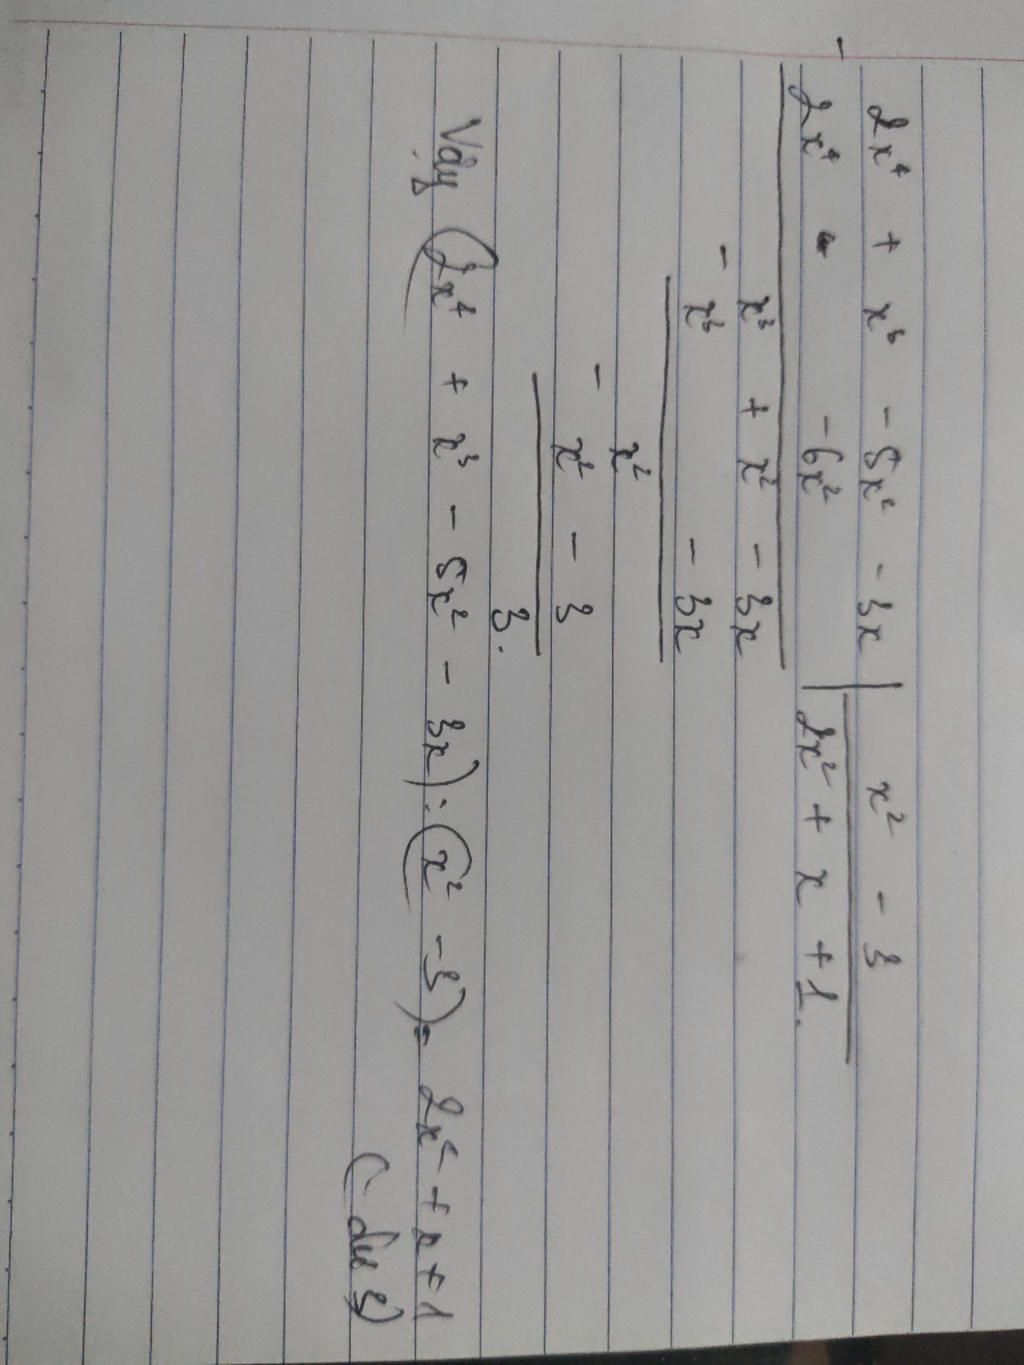 2x⁴ + x³ - 5x² - 3x | x² - 3
- 2x⁴ - 6x² | 2x² + x + 1.
x³ + x² - 3x
- x³ - 3x
x²
- x² - 3
3.
Vậy (2x⁴ + x³ - 5x² - 3x) : (x² - 3) = 2x² + x + 1
(dư 3)